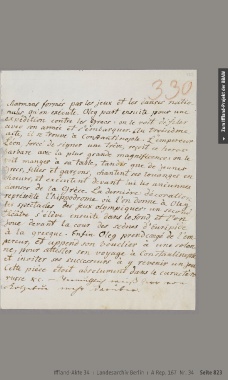 330
formés par les jeux et les danses natio-
nales qu'on execute. Oleg part ensuite pour une
expédition contre les Grecs: on le voit défiler
avec son armée et s'embarquer. Au troisième
acte, il se trouve à Constantinople. L'empereur
Léon forcé de signer une trève, reçoit ce héros
barbare avec la plus grande magnificence: on le
voit manger à sa table, tandis que de jeunes
Grecs, filles et garçons, chantent ses louanges en
chœur, et exécutent devant lui les anciennes
danses de la Grèce. La dernière décoration
représente l'hippodrome où l'on donne à Oleg
le spectacle des jeux olympiques: un second
théâtre s'élève ensuite dans le fond et l'on
joue devant la cour des scènes d'Euripide
à la grecque. Enfin Oleg prend congé de l'em-
pereur, et append son bouclier à une colon-
ne, pour attester son voyage à Constantinople
et inviter ses successeurs à y revenir un jour.
Cette pièce étoit absolument dans le caractère
Iffland-Akte 34 - Landesarchiv Berlin - A Rep. 167 Nr. 34 Seite 823
Zum Iffland-Projekt der BBAW